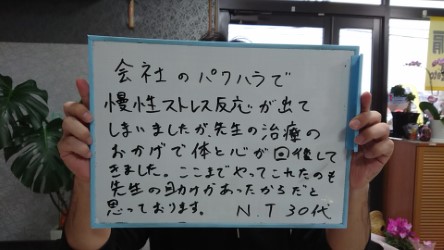 会社のパワハラで
慢性ストレス反応が出て
しまいましたが先生の治療の
おかげで体と心が回復して
きました。ここまでやってこれたのも
先生の助けがあったからだと
思っております。 N.T 30代